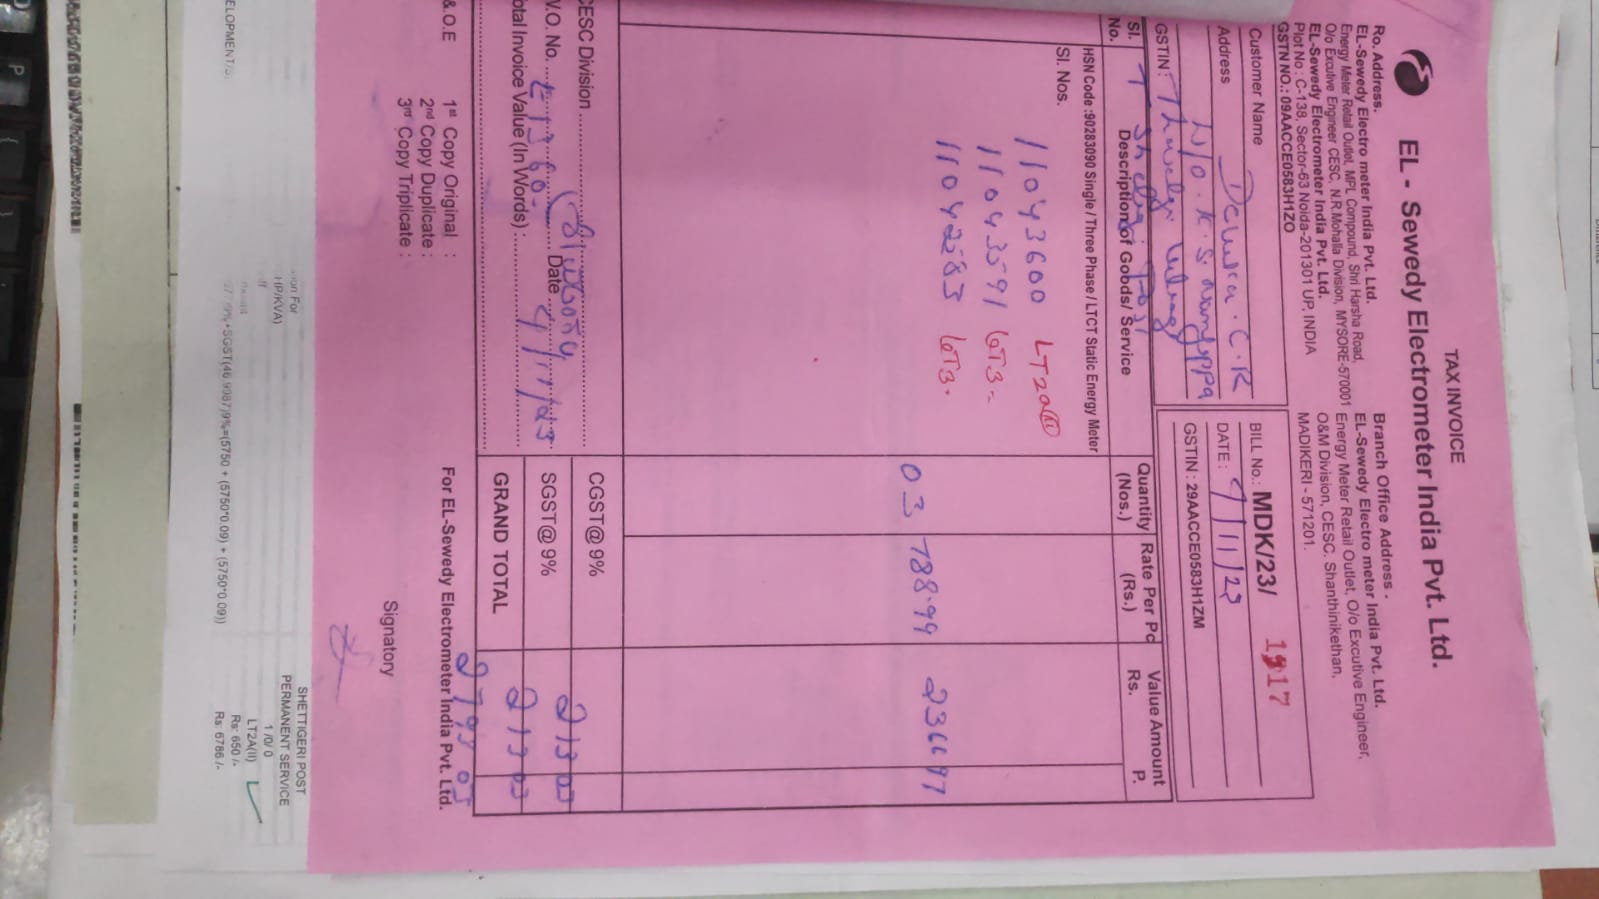 TAX INVOICE
EL - Sewedy Electrometer India Pvt. Ltd.
Ro. Address.
EL-Sewedy Electro meter India Pvt. Ltd.
Energy Meter Retail Outlet, MPL Compound, Shri Harsha Road,
O/o Excutive Engineer CESC, N.R.Mohalla Division, MYSORE-570001
EL-Sewedy Electrometer India Pvt. Ltd.
Plot No : C-138, Sector-63 Noida-201301 UP, INDIA
GSTN NO.: 09AACCE0583H1ZO
Branch Office Address -
EL-Sewedy Electro meter India Pvt. Ltd.
Energy Meter Retail Outlet, O/o Excutive Engineer,
O&M Division, CESC, Shanthinikethan,
MADIKERI - 571201.
Customer Name C.R
Address
GSTIN :
BILL No.: MDK/23/ 1917
DATE : 9/11/23
GSTIN : 29AACCE0583H1ZM
Sl. No. Description of Goods/ Service Quantity (Nos.) Rate Per Pc (Rs.) Value Amount Rs. P.
HSN Code :90283090 Single / Three Phase / LTCT Static Energy Meter
Sl. Nos.
11043600 LT2a(ii)
11043591 LT3-
11042283 LT3.
03 788.99 2366 97
CESC Division
W.O. No. Date 9/11/23
CGST@ 9% 213 03
SGST@ 9% 213 03
Total Invoice Value (In Words) :
GRAND TOTAL 2793 03
& O.E
1st Copy Original :
2nd Copy Duplicate :
3rd Copy Triplicate :
For EL-Sewedy Electrometer India Pvt. Ltd.
Signatory
SHETTIGERI POST
PERMANENT SERVICE
HP/KVA) 1 /0/ 0
LT2A(II)
Rs: 650 /-
Rs: 6786 /-